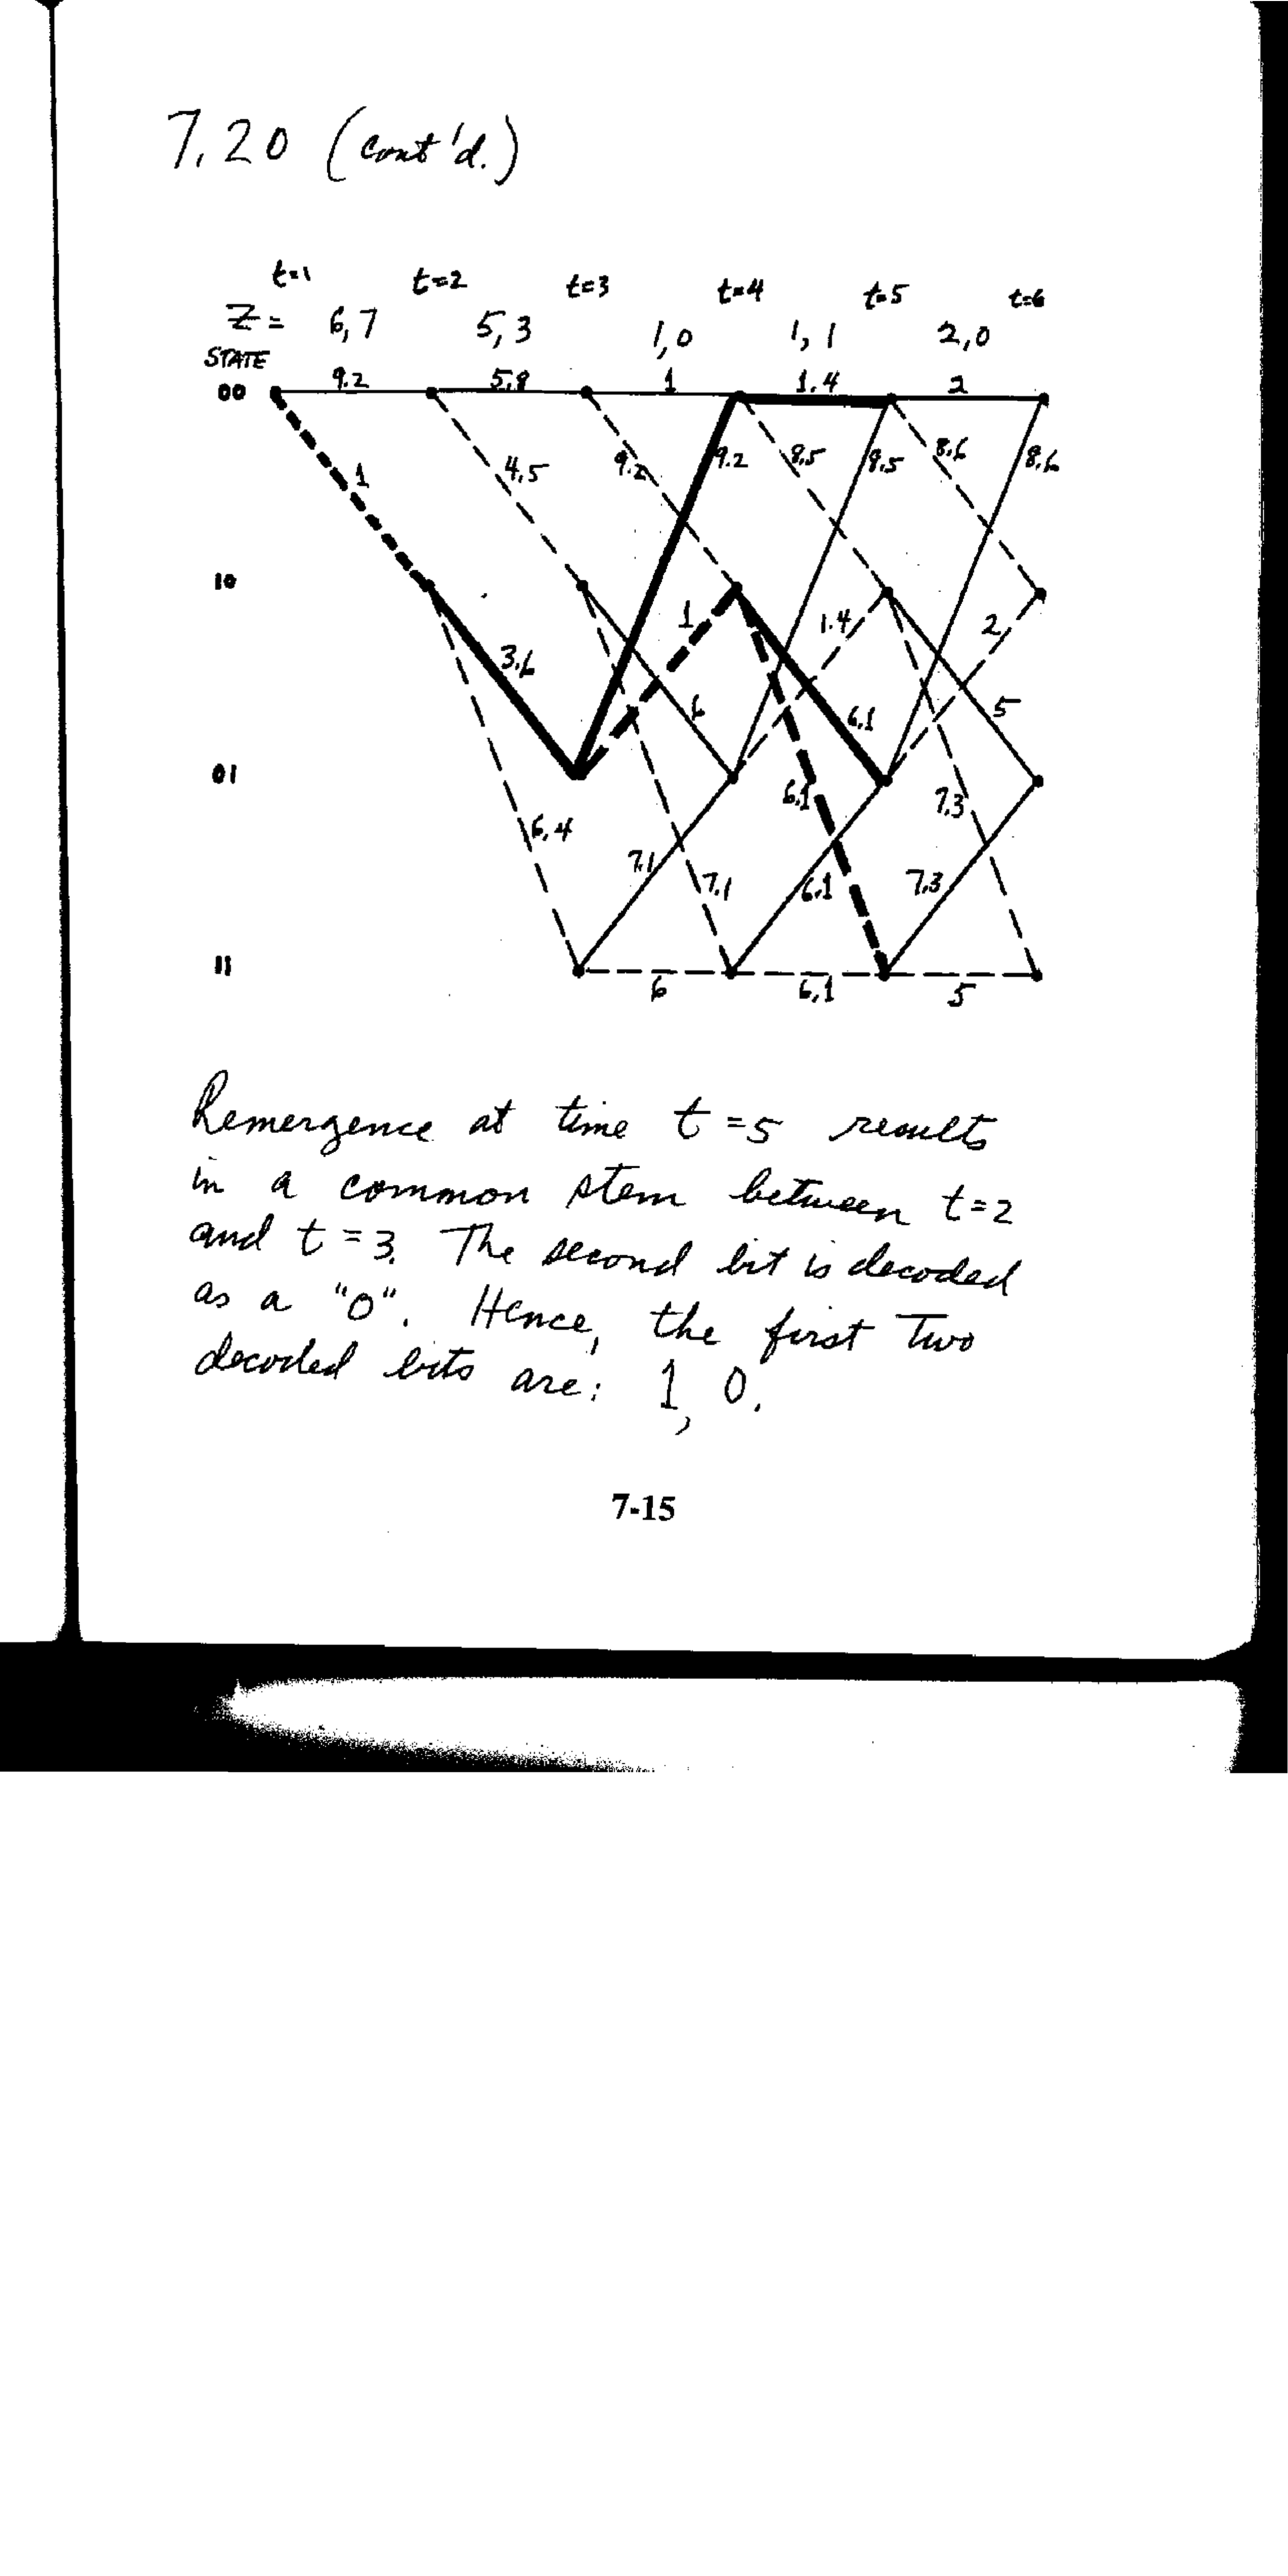 7.20 (cont'd.)
t=1 t=2 t=3 t=4 t=5 t=6
Z= 6,7 5,3 1,0 1,1 2,0
STATE
00 9.2 5.8 1 1.4 2
1 4.5 9.2 9.2 8.5 8.5 8.6 8.6
10
3.6 1 6 1.4 6.1 2 5
01
6.4 7.1 7.1 6.1 6.1 7.3 7.3
11
6 6.1 5
Remergence at time t=5 results
in a common stem between t=2
and t=3. The second bit is decoded
as a "0". Hence, the first two
decoded bits are: 1, 0.
7-15